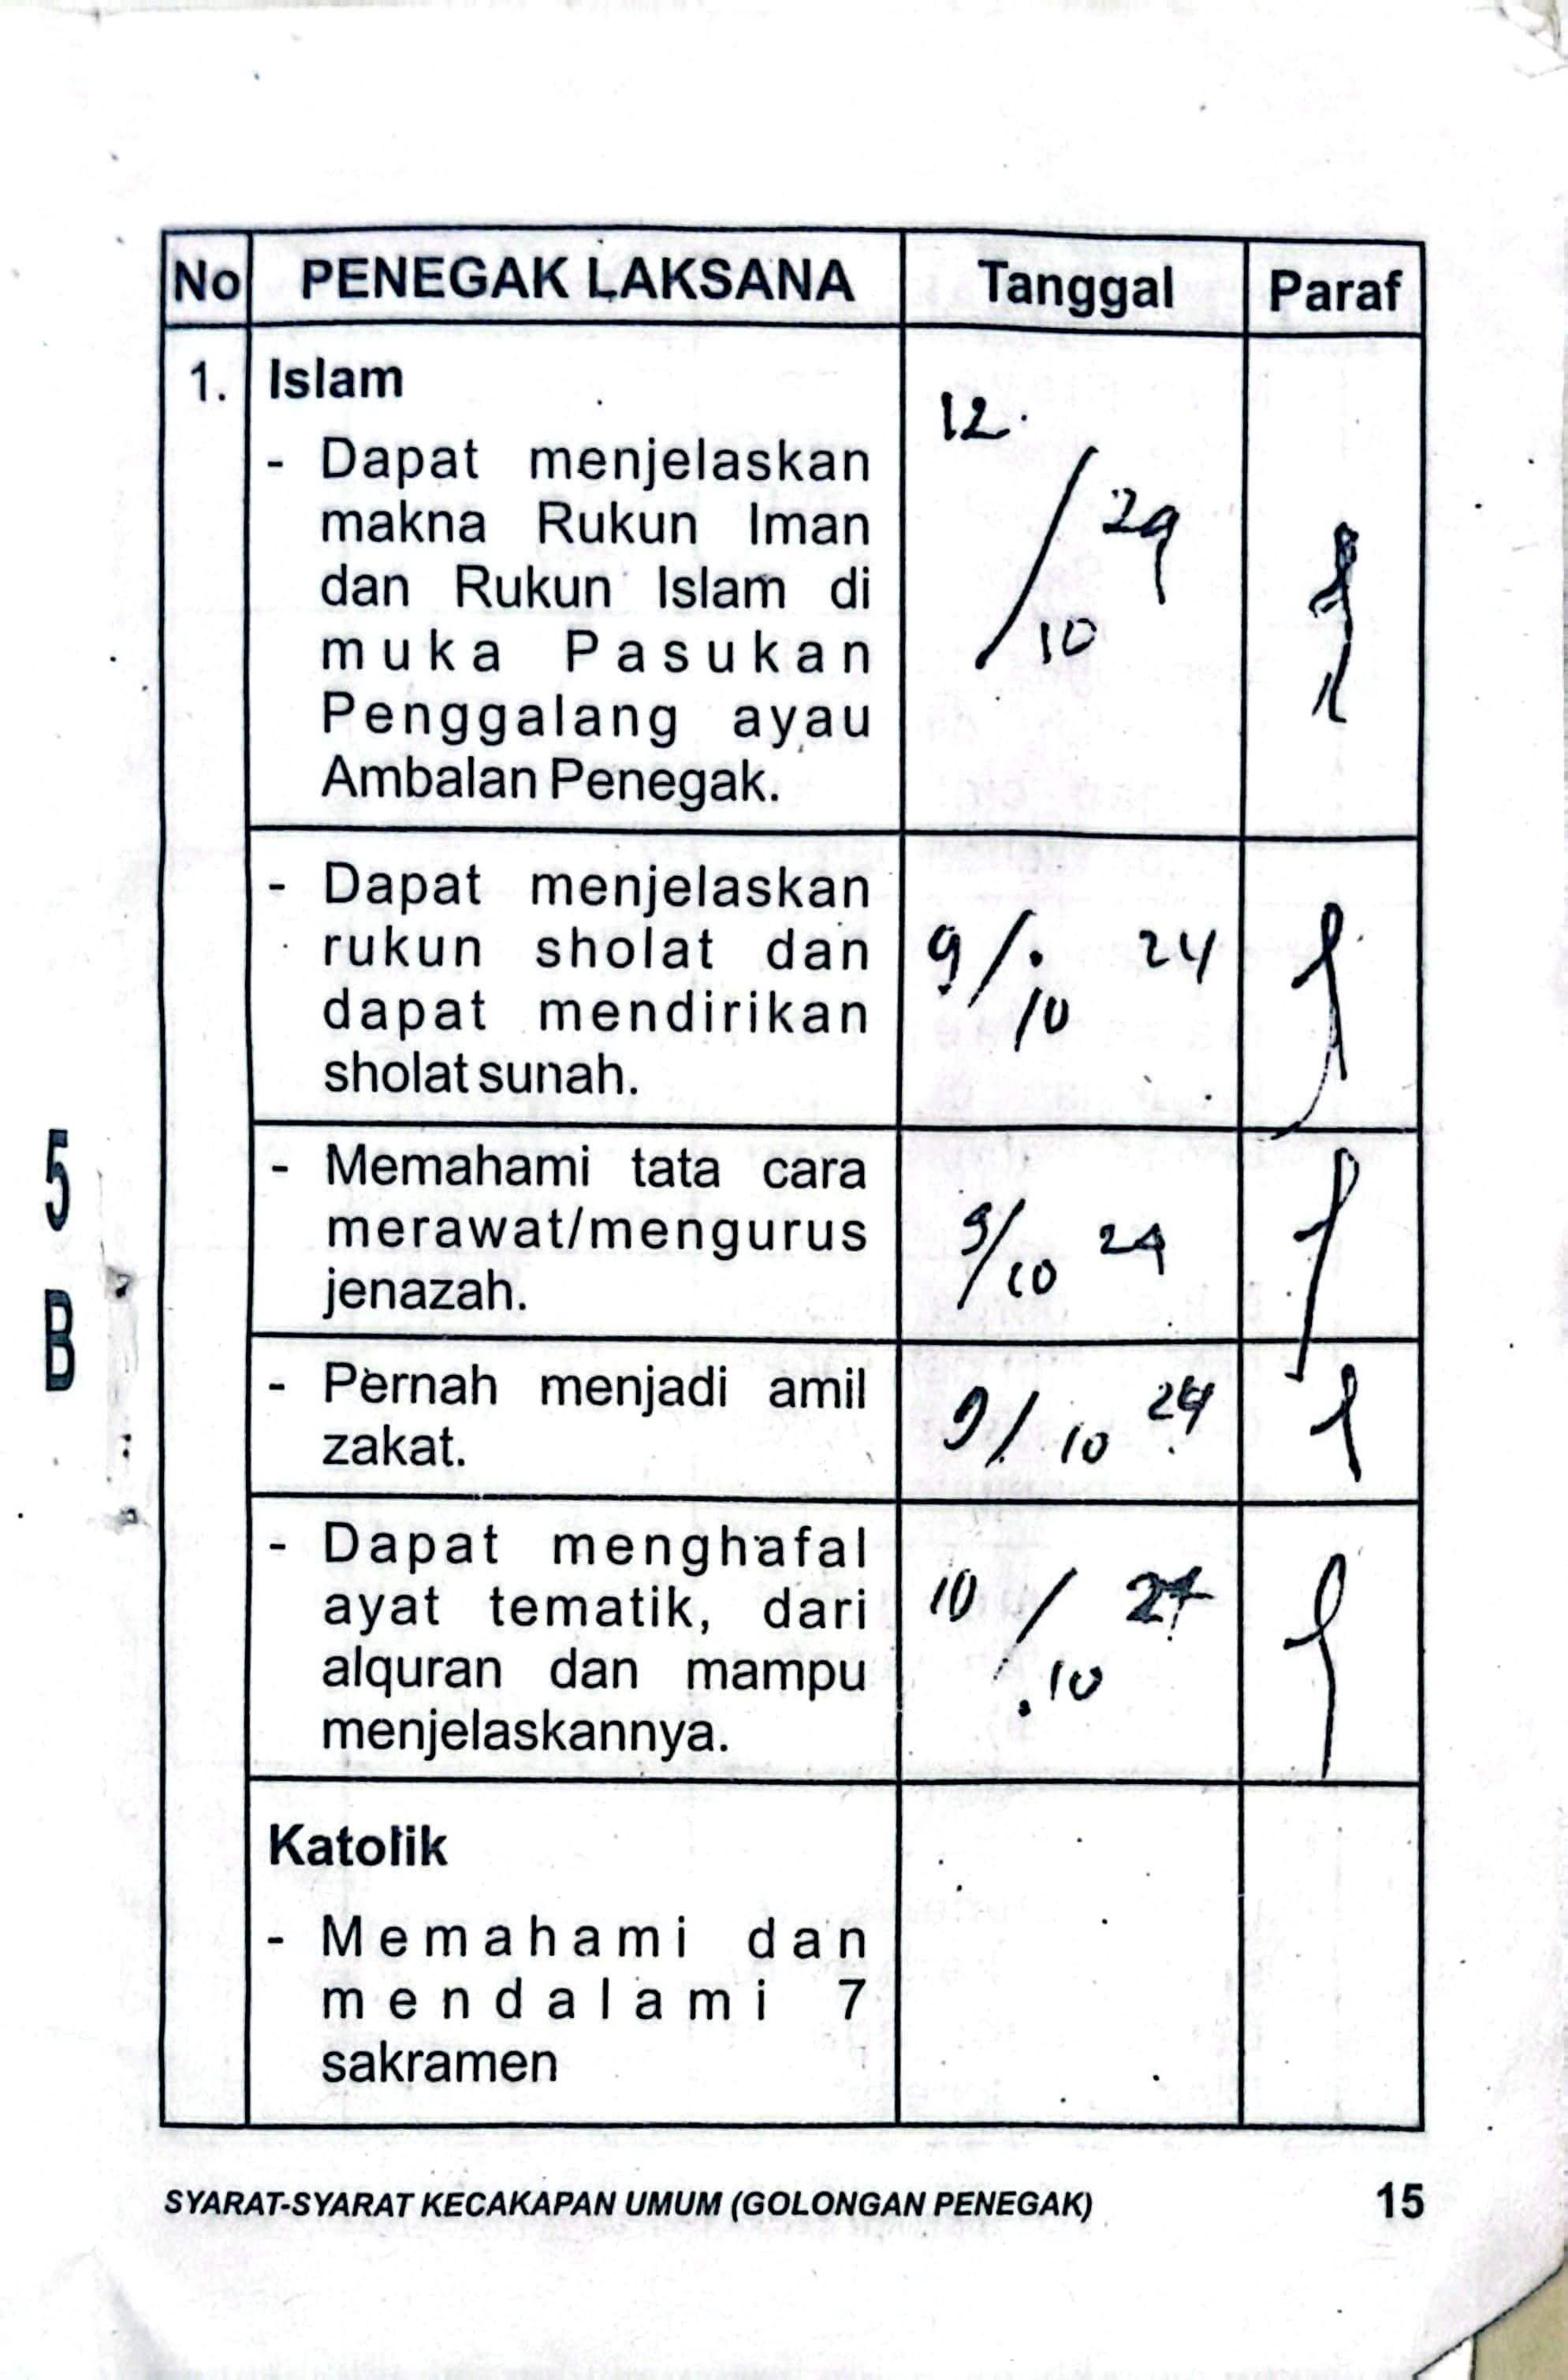 No PENEGAK LAKSANA Tanggal Paraf
1. Islam
- Dapat menjelaskan
makna Rukun Iman
dan Rukun Islam di
muka Pasukan
Penggalang ayau
Ambalan Penegak.
12
/ 24
10
- Dapat menjelaskan
rukun sholat dan
dapat mendirikan
sholat sunah.
9/10 24
- Memahami tata cara
merawat/mengurus
jenazah.
9/10 24
- Pernah menjadi amil
zakat.
9/10 24
- Dapat menghafal
ayat tematik, dari
alquran dan mampu
menjelaskannya.
10/10 24
Katolik
- Memahami dan
mendalami 7
sakramen
5
B
SYARAT-SYARAT KECAKAPAN UMUM (GOLONGAN PENEGAK) 15